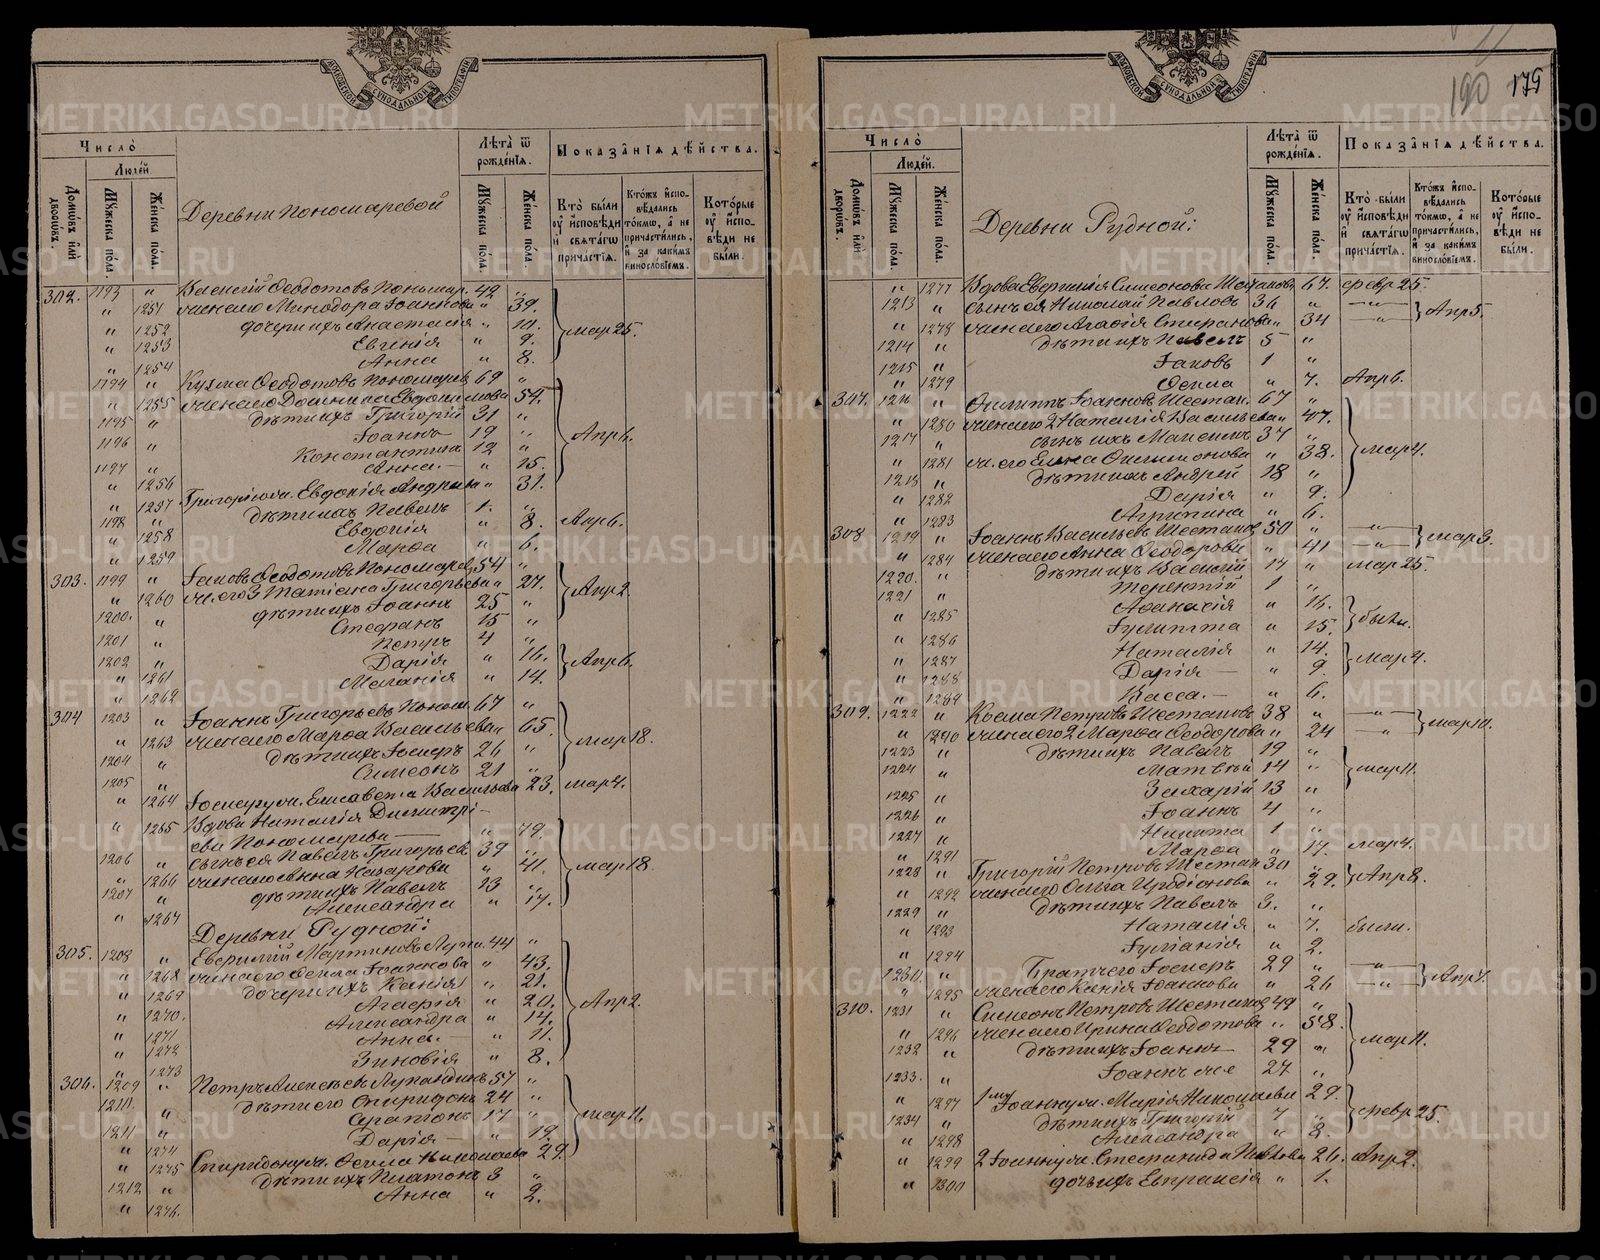 МОСКОВСКОЙ СѴНОДАЛЬНОЙ ТИПОГРАФІИ
Число̀
Людей.
Домѡвъ и҆лѝ дворѡвъ.
Мꙋжеска пола.
Женска пола.
Деревни Пономаревой
Лѣта ѿ рожденїѧ.
Мꙋжеска пола.
Женска пола.
Показанїѧ дѣйства.
Кто̀ были оу҆ и҆сповѣди и҆ свѧтагѡ причастїѧ.
Ктожъ и҆спо-
вѣдались
токмѡ, а҆ не
причастились,
и҆ за какимъ
винословїемъ.
Которые оу҆ и҆спо-
вѣди не были.
302. 1193 " Василій Ѳеодотовъ Пономар. 42 "
" 1251 жена его Минодора Іоаннова " 39.
" 1252 дочери ихъ Анастасія "
" 1253 Евгенія " 9. мар 25.
" 1254 Анна " 8.
1194 " Кузма Ѳеодотовъ Пономарев 69 "
" 1255 жена его Домника Евдокимова 54.
1195 " дѣти ихъ Григорій 31 "
1196 " Іоаннъ 19 "
1197 " Константинъ 12 "
" 1256 Анна " 15.
" 1257 Григорію ж. Евдокія Андреева " 31.
1198 " дѣти ихъ Павелъ 1. "
" 1258 Евдокія " 8. Апр 6.
" 1259 Марѳа " 6.
303. 1199 " Іаковъ Ѳеодотовъ Пономарев 54 "
" 1260 ж. его 3 Татіана Григорьева " 27. Апр 2.
1200. " дѣти ихъ Іоаннъ 25 "
1201 " Стефанъ 15 "
1202 " Петръ 4 "
" 1261 Дарія " 16. Апр 6.
" 1262 Меланія " 14.
304 1203 " Іоаннъ Григорьевъ Поном. 67 "
" 1263 жена его Марѳа Васильева " 65.
1204 " дѣти ихъ Іосифъ 26 " мар 18.
1205 " Симеонъ 21 "
" 1264 Іосифу ж. Елисавета Васильева 23. мар 4.
" 1265 Вдова Наталія Димитрі-
ева Пономарева " 79.
1206 " сынъ ея Павелъ Григорьев 39 "
" 1266 жена его Анна Назарова " 41. мар 18.
1207 " дѣти ихъ Павелъ 13 "
" 1267 Александра " 17.
Деревни Рудной:
305. 1208 " Евфимій Мартиновъ Лупан. 44 "
" 1268 жена его Ѳекла Іоаннова " 43.
" 1269 дочери ихъ Ксенія " 21.
" 1270. Агафія " 20. Апр 2.
" 1271 Александра " 14.
" 1272 Анна. " 11.
" 1273 Зиновія " 8.
306. 1209 " Петръ Алексѣевъ 57 "
1210. " дѣти его Спиридонъ 24 "
1211 " 17 " мар 11.
" 1274 Дарія " 19.
" 1275 Спиридону ж. Ѳекла Николаева 29.
1212 " дѣти ихъ Платонъ 3 "
" 1276. Анна " 2.
190 179
Число̀
Людей.
Домѡвъ и҆лѝ дворѡвъ.
Мꙋжеска пола.
Женска пола.
Деревни Рудной:
Лѣта ѿ рожденїѧ.
Мꙋжеска пола.
Женска пола.
Показанїѧ дѣйства.
Кто̀ были оу҆ и҆сповѣди и҆ свѧтагѡ причастїѧ.
Ктожъ и҆спо-
вѣдались
токмѡ, а҆ не
причастились,
и҆ за какимъ
винословїемъ.
Которые оу҆ и҆спо-
вѣди не были.
" 1277 Вдова Евгенія Симеонова Шестаков. 67. февр 25.
1213 " сынъ ея Николай Павловъ 36 "
" 1278 жена его Агафія Стефанова " 34 Апр 5.
1214 " дѣти ихъ Павелъ 5 "
1215 " Іаковъ 1 "
" 1279 Ѳекла " 7. Апр 6.
307. 1216 " Филиппъ Іоанновъ Шестак. 67 "
" 1280 жена его 2 Наталія Васильева " 47.
1217 " сынъ ихъ Максимъ 37 "
" 1281 ж. его Елена Филимонова " 38. мар 4.
1218 " дѣти ихъ Андрей 18 "
" 1282 Дарія " 9.
" 1283 Агрипина " 6.
308 1219 " Іоаннъ Васильевъ Шестаков 50 "
" 1284 жена его Анна Ѳеодорова " 41 мар 3.
1220. " дѣти ихъ Василій 17 " мар 25.
1221 " Терентій 1 "
" 1285 Аѳанасія " 16.
" 1286 Іулитта " 15. были.
" 1287 Наталія " 14.
" 1288 Дарія " 9. мар 4.
" 1289 Васса. " 6.
309. 1222 " Косма Петровъ Шестаковъ 38 "
" 1290 жена его 2 Марѳа Ѳеодорова " 24
1223 " дѣти ихъ Павелъ 19 "
1224 " Матвѣй 14 " мар 11.
1225 " Захарій 13 "
1226 " Іоаннъ 4 "
1227 " Никита 1 "
" 1291 Марѳа " 17. мар 4.
1228 " Григорій Петровъ Шестак 30 "
" 1292 жена его Ольга Иродіонова " 29. Апр 8.
1229 " дѣти ихъ Павелъ 3. "
" 1293 Наталія " 7. были.
" 1294 Іуліанія " 2.
1230. " Братъ его Іосифъ 29 "
" 1295 жена его Ксенія Іоаннова " 26
310. 1231 " Симеонъ Петровъ Шестаков 49 "
" 1296 жена его Ирина Ѳеодотова " 58.
1232 " дѣти ихъ Іоаннъ 29 " мар 11.
1233. " Іоаннъ же 27 "
" 1297 1му Іоанну ж. Марія Николаева 29.
1234 " дѣти ихъ Григорій 7 " февр 25.
" 1298 Александра " 8.
" 1299 2 Іоанну ж. Стефанида Павлова 26. Апр 2.
" 1300 дочь ихъ Евпраксія " 1.